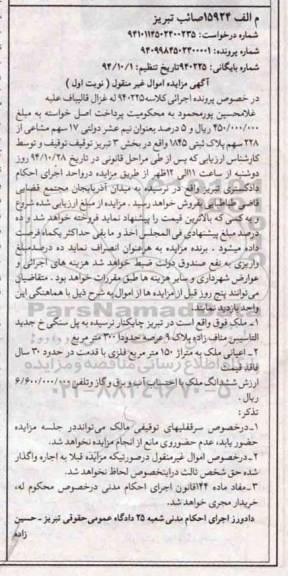 م الف ۱۵۹۲۴صائب تبریز
شماره درخواست: ۹۴۱۰۱۱۴۵۰۲۴۰۰۲۳۵
شماره پرونده: ۹۴۰۹۹۸۴۵۰۲۴۰۰۰۰۱
شماره بایگانی: ۹۴۰۲۲۵تاریخ تنظیم: ۹۴/۱۰/۱
آگهی مزایده اموال غیر منقول ( نوبت اول )
در خصوص پرونده اجرائی کلاسه۹۴۰۲۲۵ له غزال قالیباف علیه
غلامحسین پورمحمود به محکومیت پرداخت اصل خواسته به مبلغ
۴۵۰/۰۰۰/۰۰۰ ریال و ۵ درصد بعنوان نیم عشر دولتی ۱۷ سهم مشاعی از
۲۲۸ سهم پلاک ثبتی ۱۸۴۵ واقع در بخش ۳ تبریز توقیف توقیف و توسط
کارشناس ارزیابی که پس از طی مراحل قانونی در تاریخ ۹۴/۱۰/۲۸ روز
دوشنبه از ساعت ۱۱الی ۱۲ظهر از طریق مزایده درواحد اجرای احکام
دادگستری تبریز واقع در نرسیده به میدان آذربایجان مجتمع قضایی
قاضی طباطبایی بفروش خواهد رسید . مزایده از مبلغ ارزیابی شده شروع
و به کسی که بالاترین قیمت را پیشنهاد نماید فروخته خواهد شد و ده
درصد مبلغ پیشنهادی فی المجلس اخذ و ما بقی حداکثر یکماه فرصت
داده میشود . برنده مزایده به هرعنوان انصراف نماید ده درصدمبلغ
واریزی به نفع صندوق دولت ضبط خواهد شد هزینه های اجرائی و
عوارض شهرداری و سایر هزینه ها طبق مقررات خواهد بود . متقاضیان
می‌توانند پنج روز قبل از مزایده ها از اموال به شرح ذیل با هماهنگی این
واحد بازدید نمایند:
۱ـ ملک فوق واقع است در تبریز چایکنار نرسیده به پل سنگی خ جدید
التاسیس مناف زاده پلاک ۹ عرصه حدودا ۳۰۰ متر مربع
۲ـ اعیانی ملک به متراژ ۱۵۰ متر مربع فلزی با قدمت در حدود ۳۰ سال
ارزش ششدانگ ملک با احتساب آب و برق و گاز وتلفن ۶/۶۰۰/۰۰۰/۰۰۰
ریال .
تذکر :
۱ـ درخصوص سرقفلیهای توقیفی مالک می‌توانددر جلسه مزایده
حضور یابد، عدم حضوروی مانع از انجام مزایده نخواهد شد.
۲ـ درخصوص اموال غیرمنقول درصورتیکه مزایده قبلا به اجاره واگذار
شده حق شخص ثالث دراینخصوص لحاظ نخواهد شد.
۳ـ مفاد ماده ۱۴۴قانون اجرای احکام مدنی درخصوص محکوم له،
خریدار مجری خواهد شد.
دادورز اجرای احکام مدنی شعبه ۲۵ دادگاه عمومی حقوقی تبریز ـ حسین
زاده